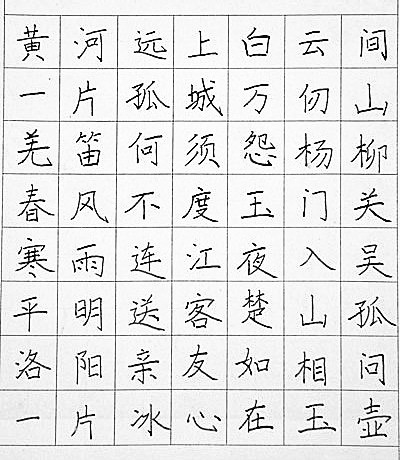 黄河远上白云间
一片孤城万仞山
羌笛何须怨杨柳
春风不度玉门关
寒雨连江夜入吴
平明送客楚山孤
洛阳亲友如相问
一片冰心在玉壶